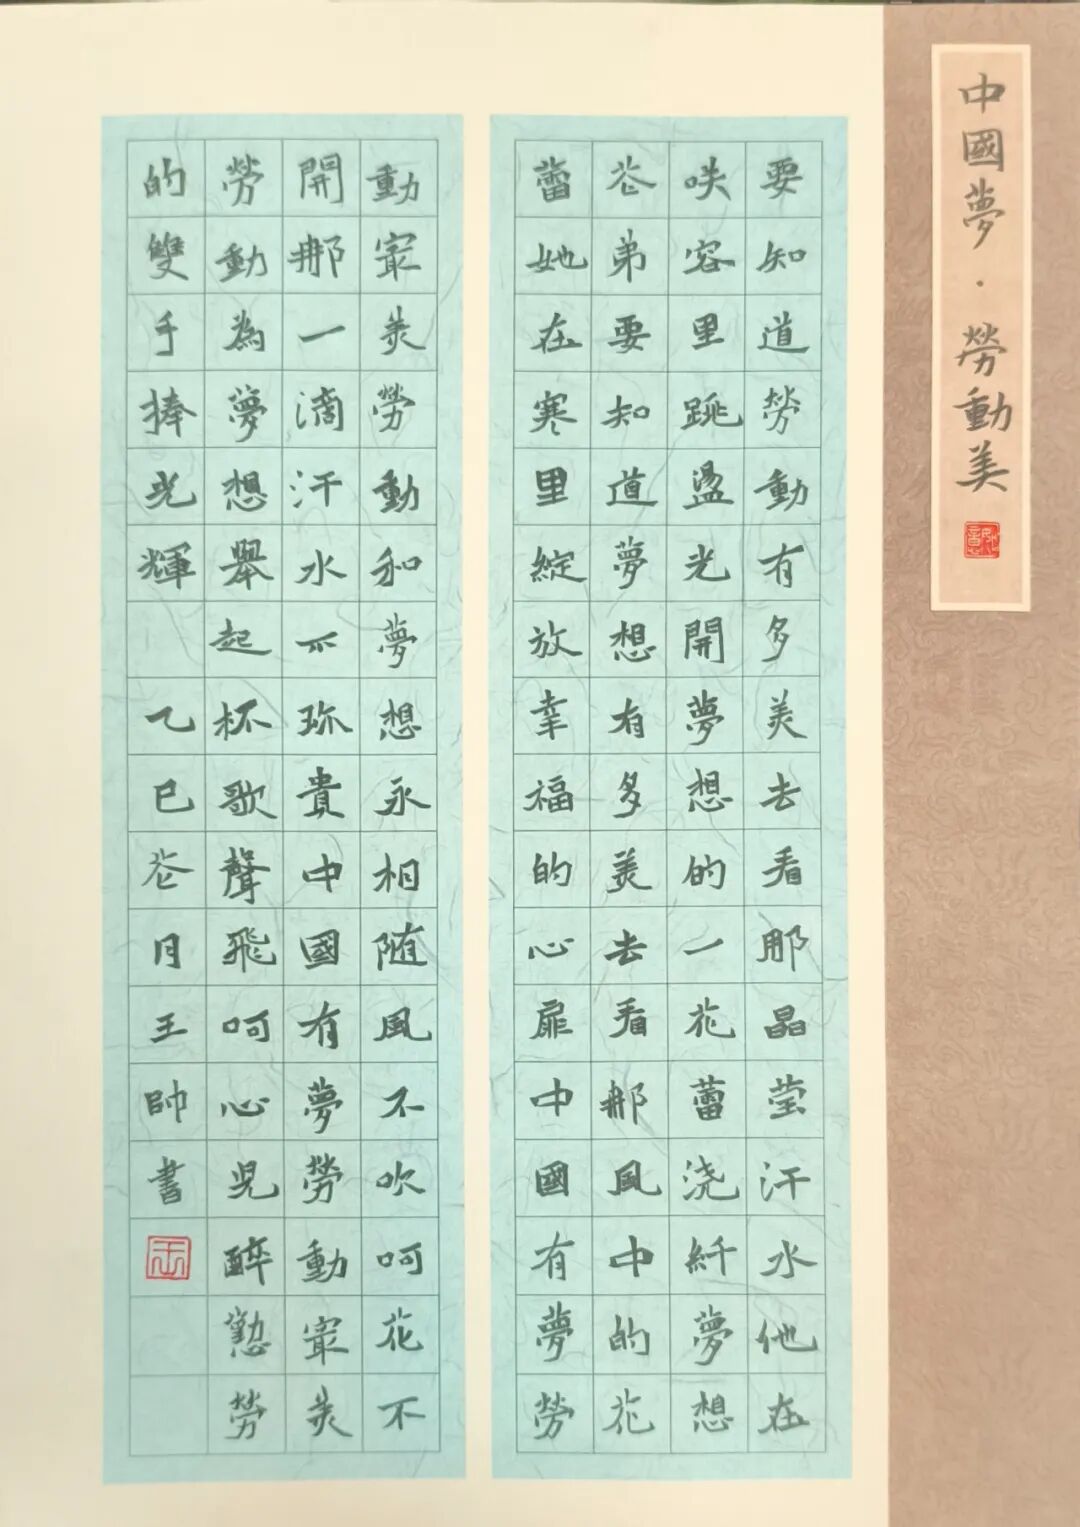 中國夢·勞動美
如意
要知道勞動有多美去看那晶莹汗水他在
咲容里跳盪光開夢想的一花蕾浇纤夢想
芲弟要知道夢想有多美去看那風中的花
蕾她在寒里綻放幸福的心扉中國有夢勞
動㝡美勞動和夢想永相随風不吹呵花不
開那一滴汗水不珎貴中國有夢勞動㝡美
勞動為夢想舉起杯歌聲飛呵心兒醉懃勞
的雙手捧光輝 乙巳芲月王帥書
王